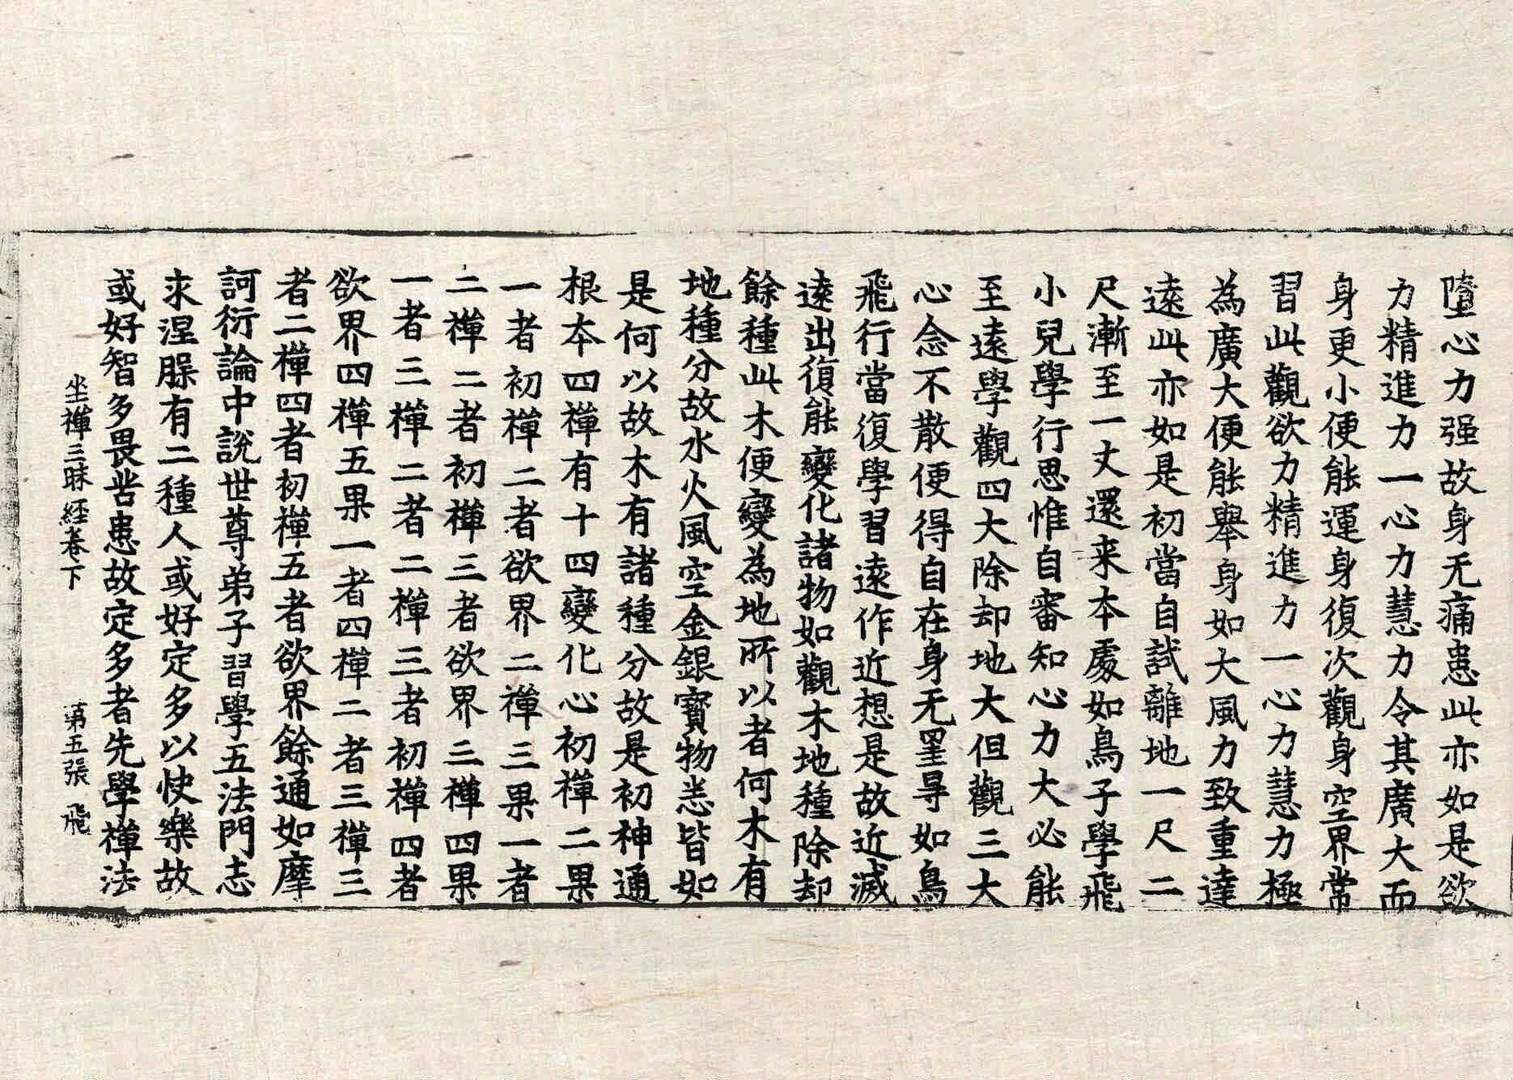 墮心力强故身无痛患此亦如是欲
力精進力一心力慧力令其廣大而
身更小便能運身復次觀身空界常
習此觀欲力精進力一心力慧力極
為廣大便能舉身如大風力致重達
遠此亦如是初當自試離地一尺二
尺漸至一丈還来本處如鳥子學飛
小兒學行思惟自審知心力大必能
至遠學觀四大除却地大但觀三大
心念不散便得自在身无罣㝵如鳥
飛行當復學習遠作近想是故近滅
遠出復能變化諸物如觀木地種除却
餘種此木便變為地所以者何木有
地種分故水火風空金銀寶物悉皆如
是何以故木有諸種分故是初神通
根本四禪有十四變化心初禪二果
一者初禪二者欲界二禪三果一者
二禪二者初禪三者欲界三禪四果
一者三禪二者二禪三者初禪四者
欲界四禪五果一者四禪二者三禪三
者二禪四者初禪五者欲界餘通如摩
訶衍論中說世尊弟子習學五法門志
求涅㮈有二種人或好定多以快樂故
或好智多畏苦患故定多者先學禪法
坐禪三昧經卷下 第五張 飛